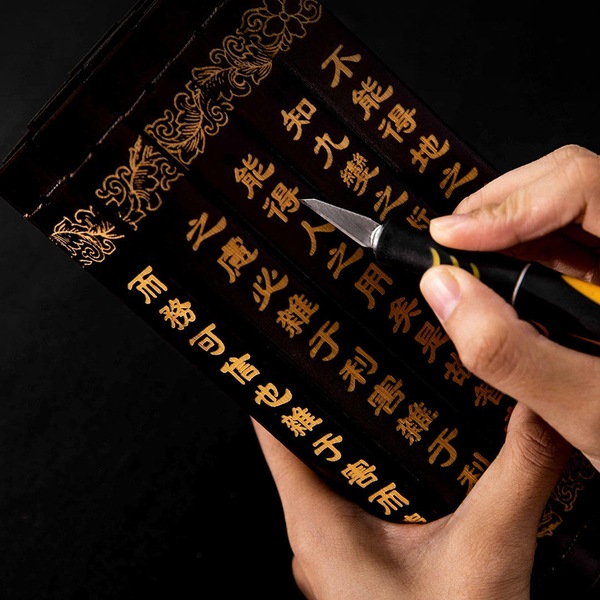 不能得地之
知九變之術
能得人之用矣是故
之慮必雜于利害雜于利
而務可信也雜于害而